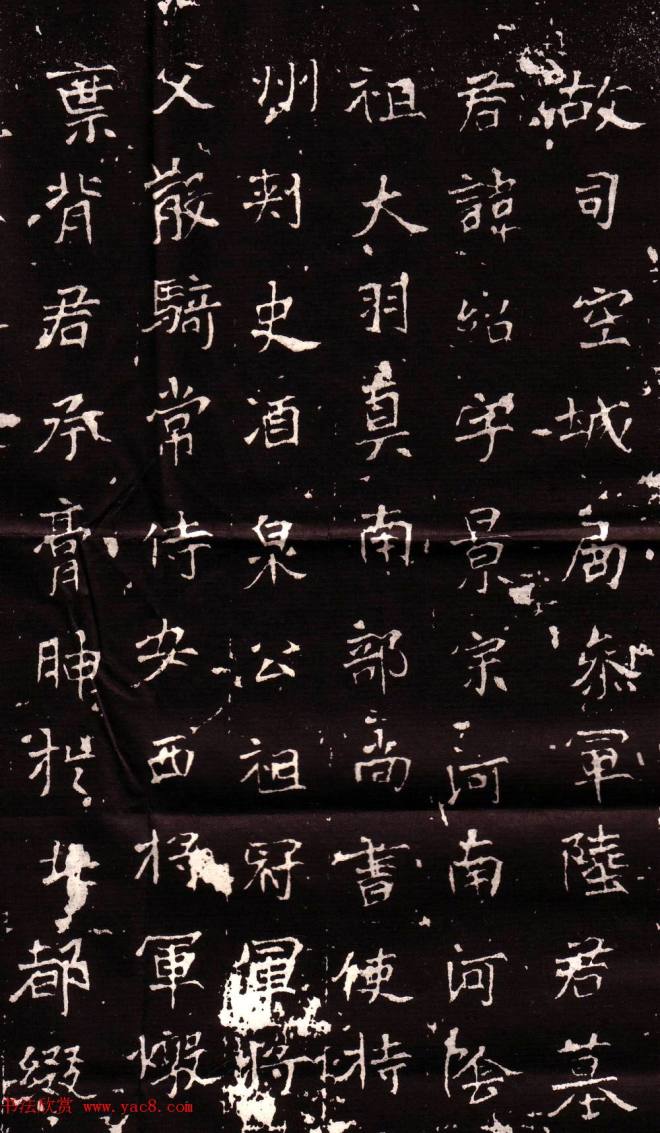 故司空城局參軍陸君墓
君諱紹字景宗河南河陰
祖大羽真南部尚書使持
州刺史酒泉公祖冠軍將
父散騎常侍安西將軍
葉背君承膏腴於都綴
书法欣赏 www.yac8.com